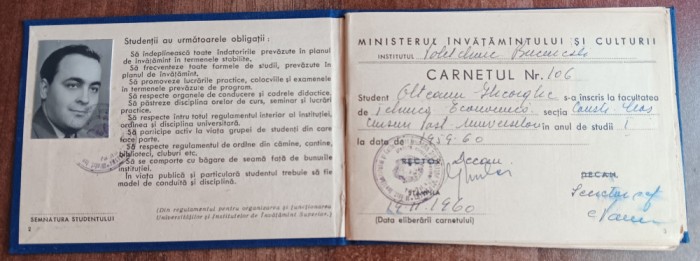 Studenții au următoarele obligații:
Să îndeplinească toate îndatoririle prevăzute în planul
de învățămînt în termenele stabilite.
Să frecventeze toate formele de studii, prevăzute în
planul de învățămînt.
Să promoveze lucrările practice, colocviile și examenele
în termenele prevăzute de program.
Să respecte organele de conducere și cadrele didactice.
Să păstreze disciplina orelor de curs, seminar și lucrări
practice.
Să respecte întru totul regulamentul interior al instituției,
ordinea și disciplina universitară.
Să participe activ la viața grupei de studenți din care
face parte.
Să respecte regulamentul de ordine din cămine, cantine,
biblioteci, cluburi etc.
Să se comporte cu băgare de seamă față de bunurile
instituției.
În viața publică și particulară studentul trebuie să fie
model de conduită și disciplină.
(Din regulamentul pentru organizarea și funcționarea
Universităților și Institutelor de Învățămînt Superior.)
SEMNATURA STUDENTULUI
MINISTERUL INVĂȚĂMÎNTULUI ȘI CULTURII
INSTITUTUL Politehnic București
CARNETUL Nr. 106
Student Olteanu Gheorghe s-a înscris la facultatea
de Tehnico Economică secția
în anul de studii I
la data de 1959-60
RECTOR Decan DECAN
1960
(Data eliberării carnetului)